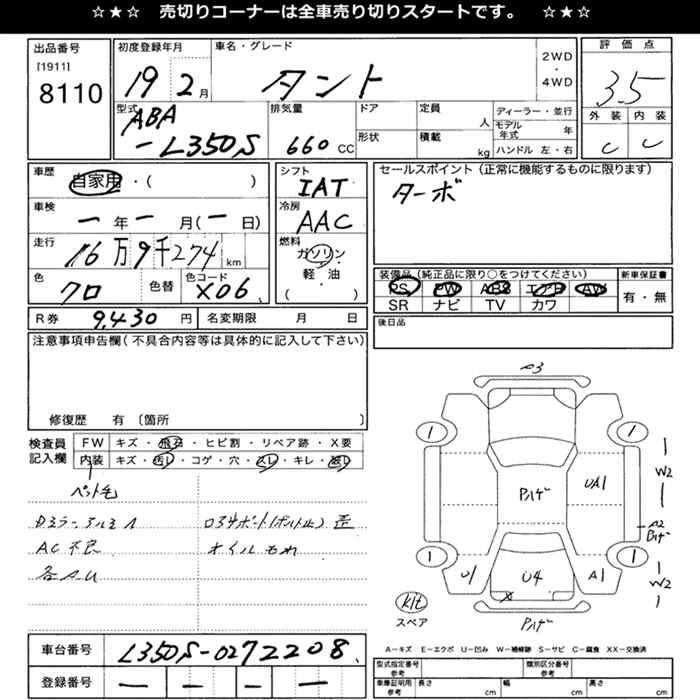 ☆★☆ 売切りコーナーは全車売り切りスタートです。 ☆★☆
出品番号
[1911]
8110
初度登録年月
19 2月
車名・グレード
タント
2WD
・
4WD
評価点
3.5
外装 内装
C C
型式
ABA
-L350S
排気量
660 CC
ドア
形状
定員 人
積載 kg
ディーラー・並行
モデル年式 年
ハンドル 左・右
車歴
自家用・( )
車検
ー年ー月(ー日)
走行
16万9千274km
色
クロ
色替
色コード
X06
シフト
IAT
冷房
AAC
燃料
ガソリン
・
軽・油
( )
セールスポイント(正常に機能するものに限ります)
ターボ
装備品(純正品に限り○をつけてください)
PS PW ABS エアB AW
SR ナビ TV カワ
新車保証書
有・無
R券 9,430円
名変期限 月 日
後日品
注意事項申告欄(不具合内容等は具体的に記入して下さい)
修復歴 有〔箇所 〕
検査員
記入欄
FW キズ・飛石・ヒビ割・リペア跡・X要
内装 キズ・汚レ・コゲ・穴・スレ・キレ・
ペット毛
AC不良
各A.U
オイルもれ
A3
1 1
W2
UA1
A2
1 1
U1 U4 A1
W2
X
スペア
A-キズ E-エクボ U-凹み W-補修跡 S-サビ C-腐食 XX-交換済
車台番号 L350S-0272208
登録番号 ー ー ー ー
型式指定番号
参考
類別区分番号
参考
車庫証明用
参考
長さ cm
幅 cm
高さ cm